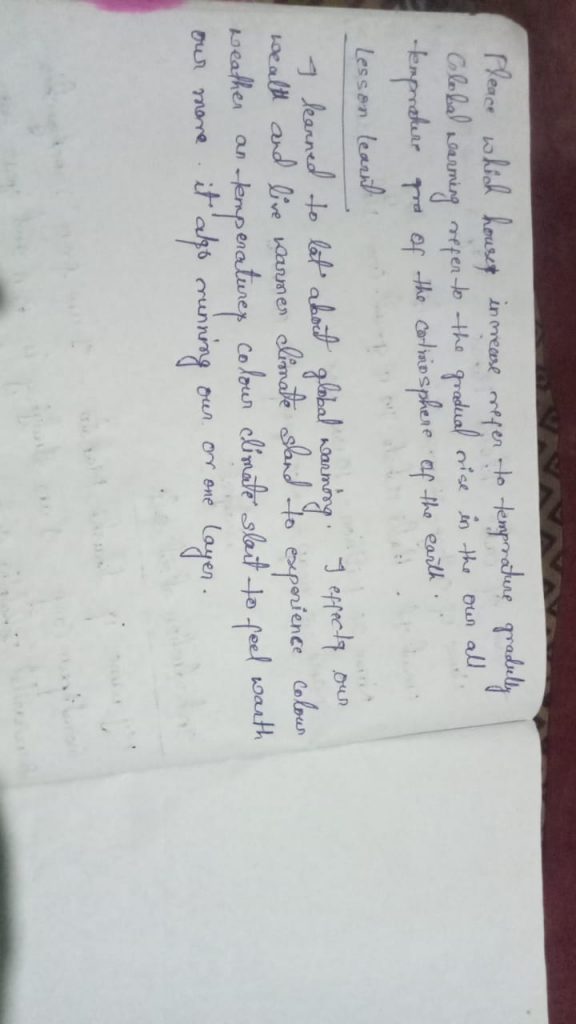 Pleace which houses increase refer to temprature gradully
Golobal warming refer to the gradual rise in the our all
temprature of the cotmosphere of the earth.
Lesson learn
I learned to lot about global warming. I effects our
wealth and live warmer climate stand to experience colour
weather as temperatures colour climate start to feel warth
our more. it also running our or one layer.